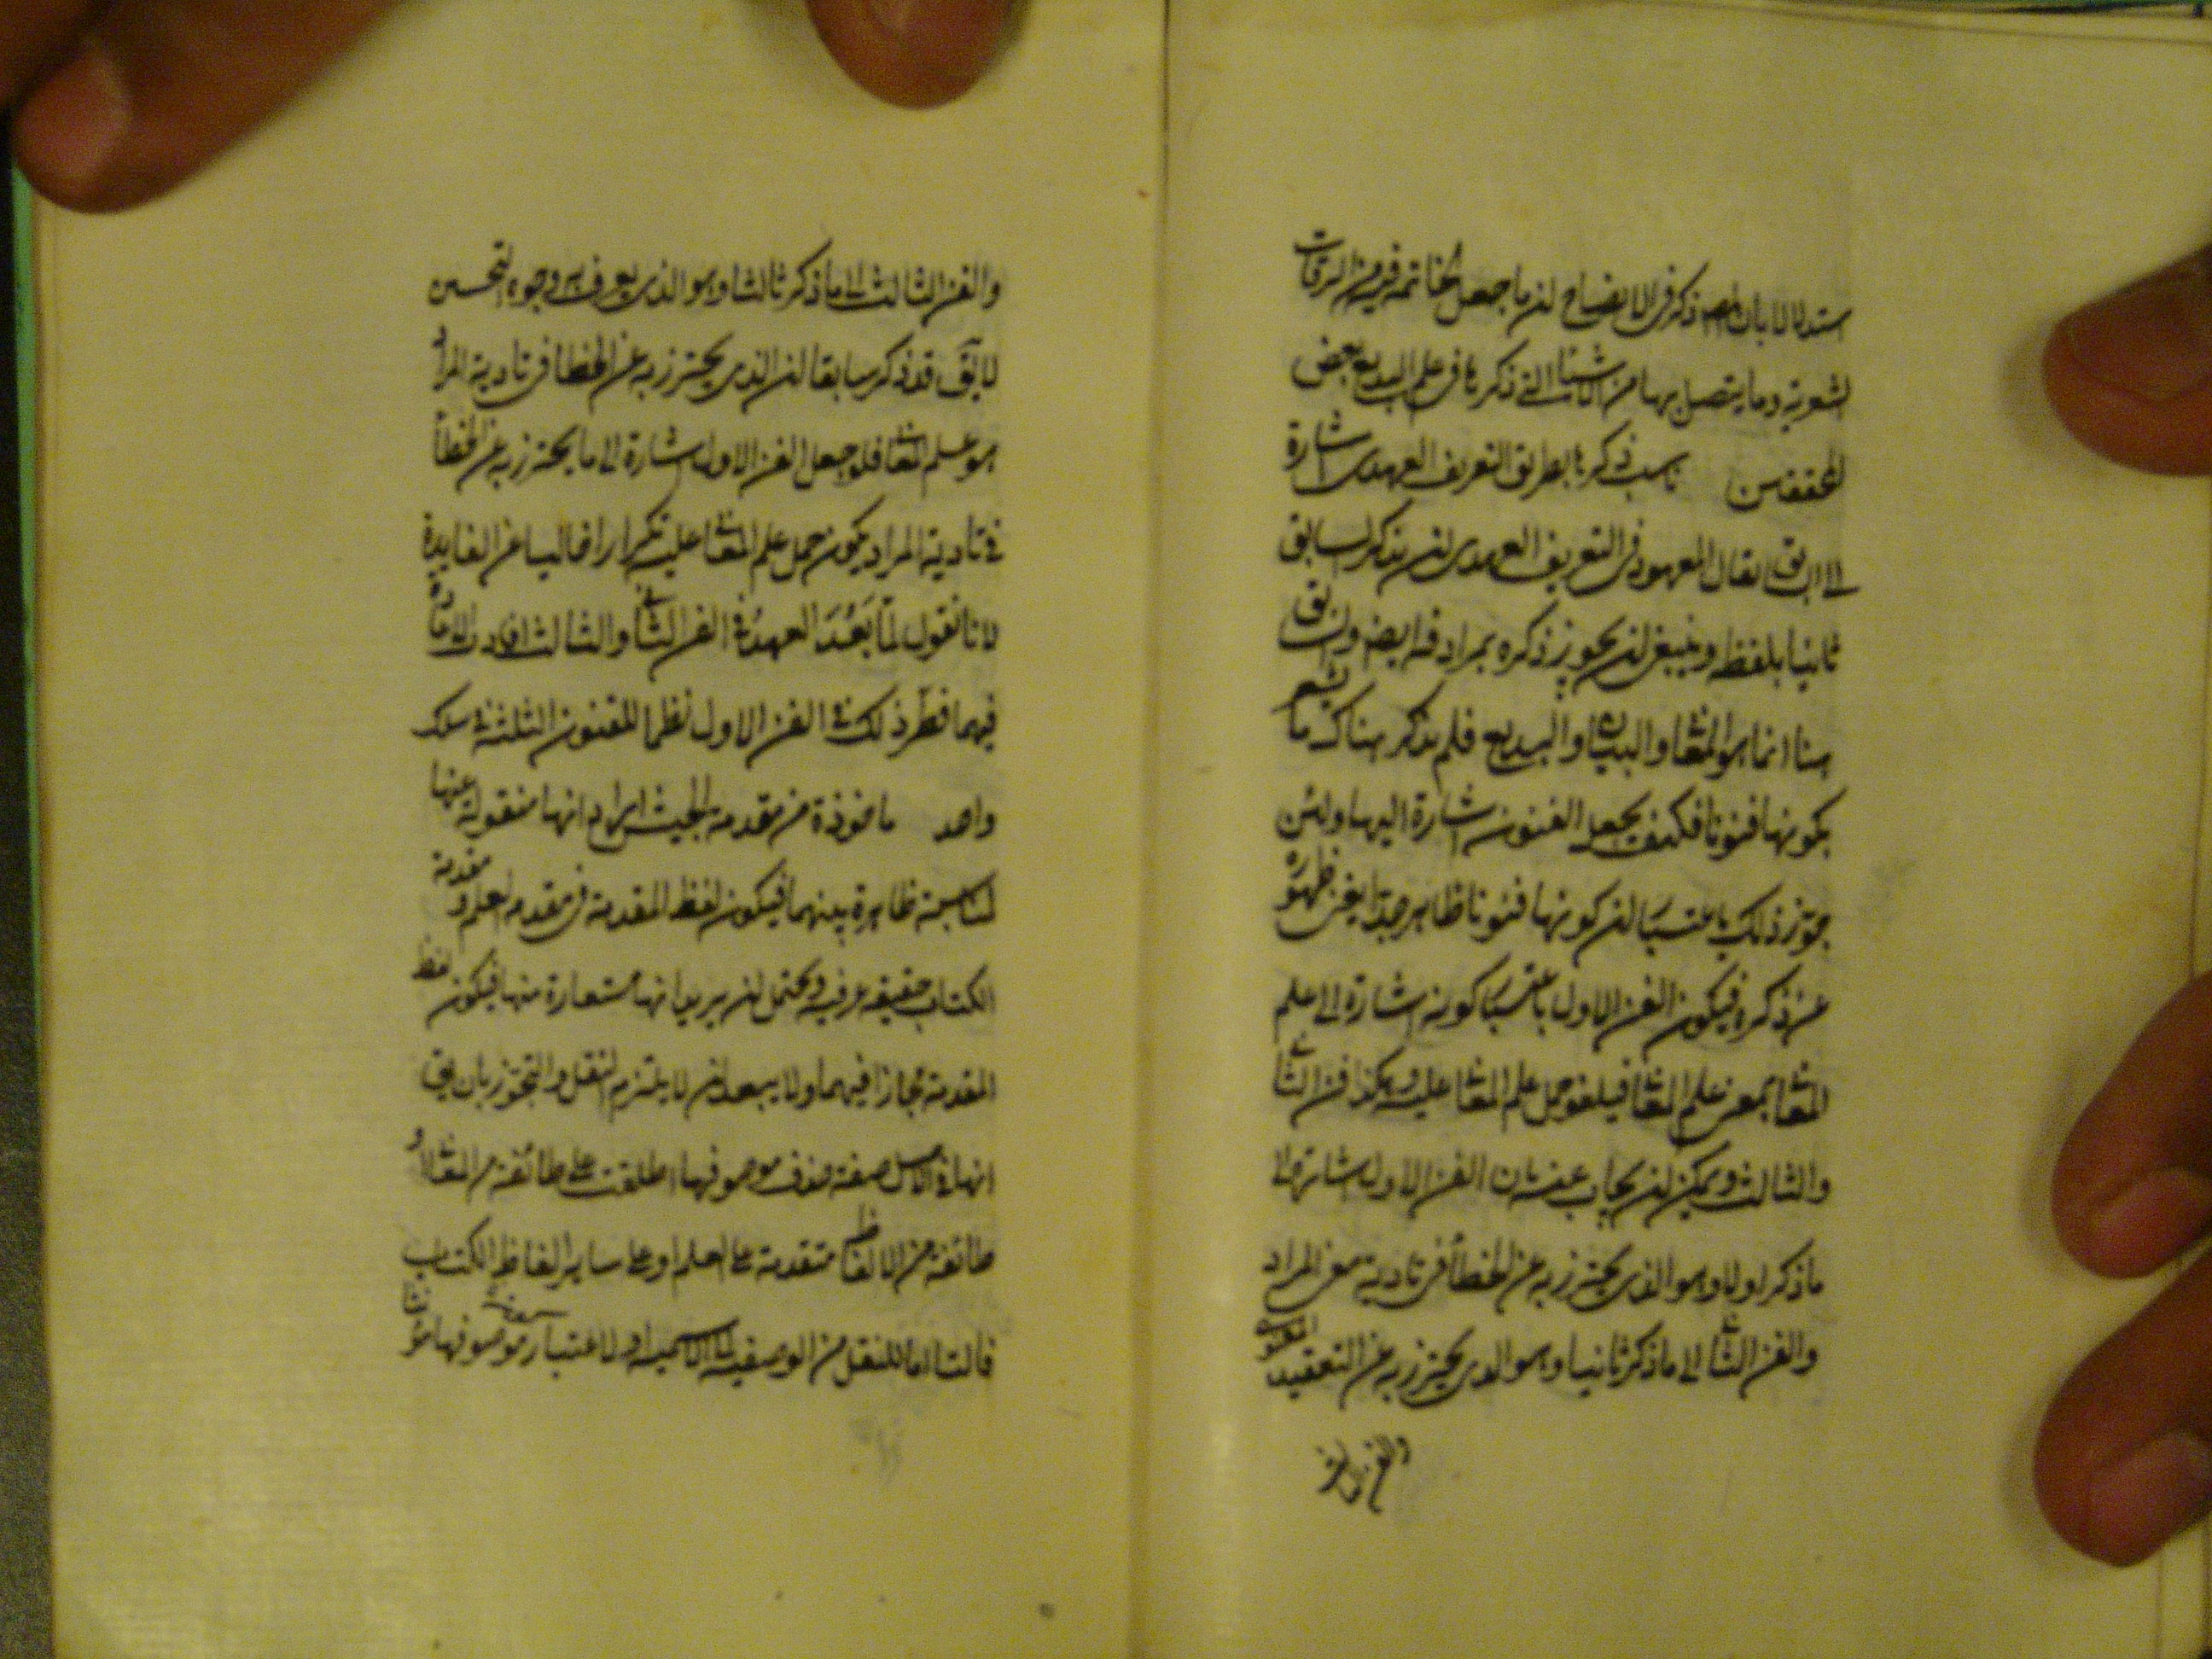 ستدلالا بان المص ذكر في الايضاح ان ما جعل الخاتمة فيه من السرقات
الشعرية وما يتصل بها من الاشياء التي ذكرها في علم البديع بعض
المحققين ناسب ذكرها بطريق التعريف العهدى اشارة
الى السابق يقال المعهود في التعريف العهدى ان يذكر السابق
ثانيا بلفظه وينبغى ان يجوز ذكره بمرادفه ايضا وان سبق
هنا انما هو المعانى والبيان والبديع فلم يذكر هناك ما يشعر
بكونها فنونا فكيف يجعل الفنون اشارة اليها ولئن
جوز ذلك باعتبار ان كونها فنونا ظاهر جدا يغنى ظهوره
عن ذكره فيكون الفن الاول باعتبار كونه اشارة الى علم
المعانى بمعنى علم المعانى فيلغو حمل علم المعانى عليه وهكذا فن الثانى
والثالث ويمكن ان يجاب عنه بان الفن الاول اشارة الى
ما ذكر اولا وهو الذى يحترز به عن الخطأ في تادية معنى المراد
والفن الثانى الى ما ذكر ثانيا وهو الذى يحترز به عن التعقيد المعنوى
والفن الثالث
والفن الثالث الى ما ذكر ثالثا وهو الذى يعرف به وجوه التحسين
لا يق قد ذكر سابقا ان الذى يحترز به عن الخطأ في تادية المراد
هو علم المعانى فلو جعل الفن الاول اشارة الى ما يحترز به عن الخطأ
في تادية المراد يكون حمل علم المعانى عليه تكرارا خاليا عن الفايدة
لانا نقول لما بعد العهد في الفن الثانى والثالث افادت الافادة
فيهما فطرد ذلك في الفن الاول نظما للفنون الثلثة في سلك
واحد ماخوذة من مقدمة الجيش اراد انها منقولة عنها
لمناسبة ظاهرة بينهما فيكون لفظ المقدمة في مقدمة العلم ومقدمة
الكتاب حقيقة عرفية ويحتمل ان يريد انها مستعارة منها فيكون لفظ
المقدمة مجازا فيهما ولا يبعد ان لا يلتزم النقل والتجوز بان يق
انها في الاصل صفة حذف موصوفها اطلقت على طائفة من المعانى او
طائفة من الالفاظ متقدمة على العلم او على ساير الفاظ الكتاب
فالتا اما للنقل من الوصفية الى الاسمية او لاعتبار موصوفها مؤنثا